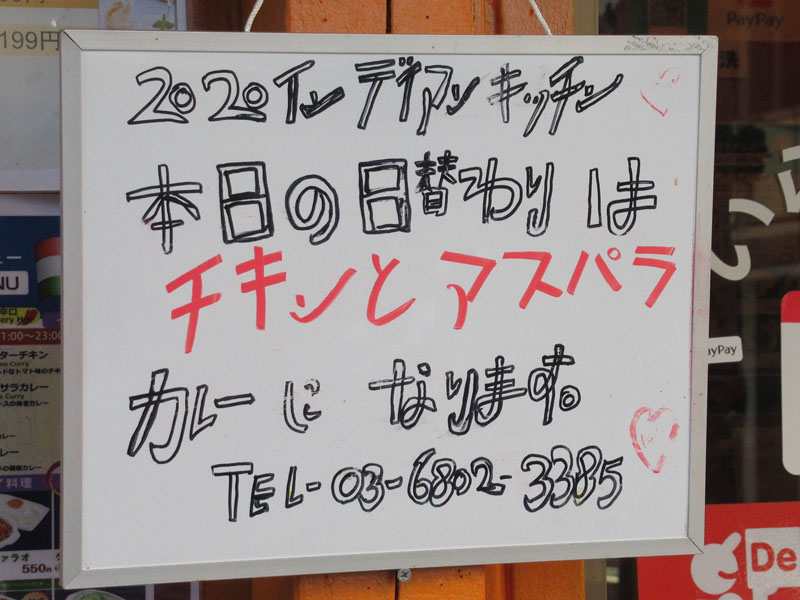 2020インディアンキッチン
本日の日替わりは
チキンとアスパラ
カレーになります。
TEL-03-6802-3385
199円
ュー
NU
辛口
11:00〜23:00
ターチキン
サラカレー
カレー
料理
ァラオ
550円
PayPay
ayPay
De